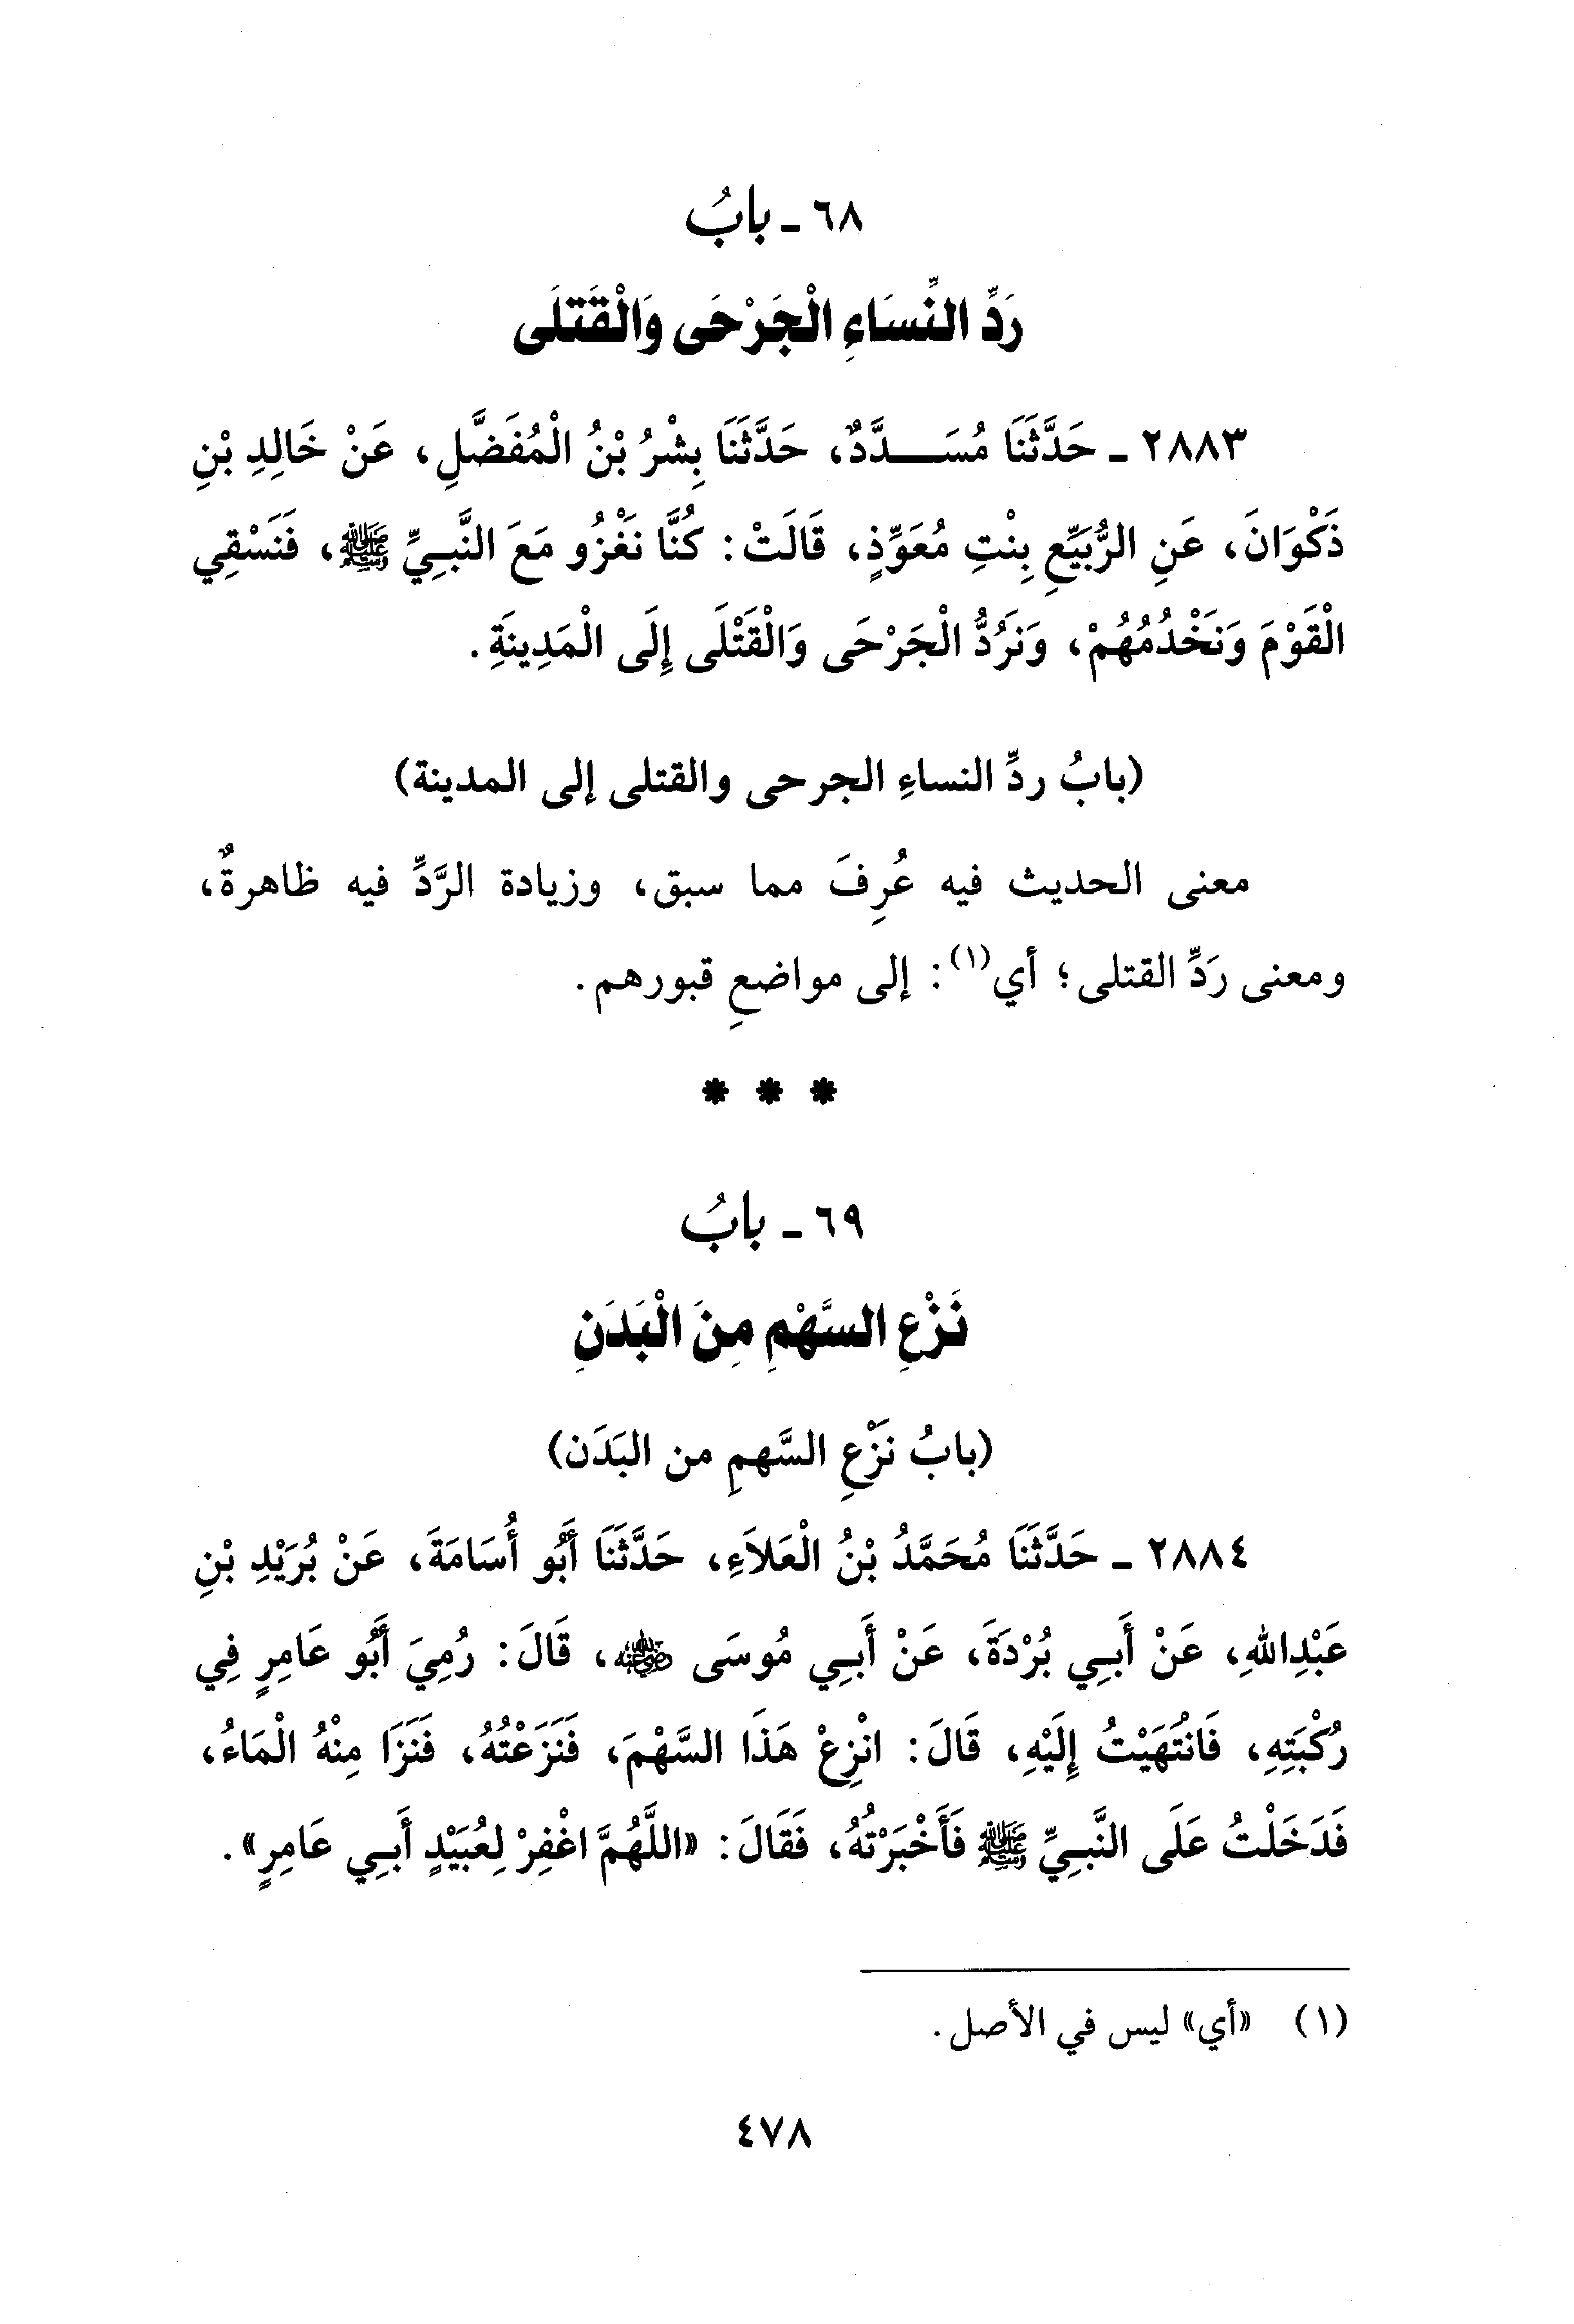 ٦٨ - بابُ
رَدِّ النِّسَاءِ الْجَرْحَى وَالْقَتلَى
٢٨٨٣ - حَدَّثَنَا مُسَـــدَّدٌ، حَدَّثَنَا بِشْرُ بْنُ الْمُفَضَّلِ، عَنْ خَالِدِ بْنِ
ذَكْوَانَ، عَنِ الرُّبَيِّعِ بِنْتِ مُعَوِّذٍ، قَالَتْ: كُنَّا نَغْزُو مَعَ النَّبِيِّ ﷺ، فَنَسْقِي
الْقَوْمَ وَنَخْدُمُهُمْ، وَنَرُدُّ الْجَرْحَى وَالْقَتْلَى إِلَى الْمَدِينَةِ.
(بابُ ردِّ النساءِ الجرحى والقتلى إلى المدينة)
معنى الحديث فيه عُرِفَ مما سبق، وزيادة الرَّدِّ فيه ظاهرةٌ،
ومعنى رَدِّ القتلى؛ أي(١): إلى مواضعِ قبورهم.
* * *
٦٩ - بابُ
نَزْعِ السَّهْمِ مِنَ الْبَدَنِ
(بابُ نَزْعِ السَّهمِ من البَدَن)
٢٨٨٤ - حَدَّثَنَا مُحَمَّدُ بْنُ الْعَلاَءِ، حَدَّثَنَا أَبُو أُسَامَةَ، عَنْ بُرَيْدِ بْنِ
عَبْدِاللهِ، عَنْ أَبِي بُرْدَةَ، عَنْ أَبِي مُوسَى رضي الله عنه، قَالَ: رُمِيَ أَبُو عَامِرٍ فِي
رُكْبَتِهِ، فَانْتَهَيْتُ إِلَيْهِ، قَالَ: انْزِعْ هَذَا السَّهْمَ، فَنَزَعْتُهُ، فَنَزَا مِنْهُ الْمَاءُ،
فَدَخَلْتُ عَلَى النَّبِيِّ ﷺ فَأَخْبَرْتُهُ، فَقَالَ: «اللَّهُمَّ اغْفِرْ لِعُبَيْدٍ أَبِي عَامِرٍ».
(١) «أي» ليس في الأصل.
٤٧٨